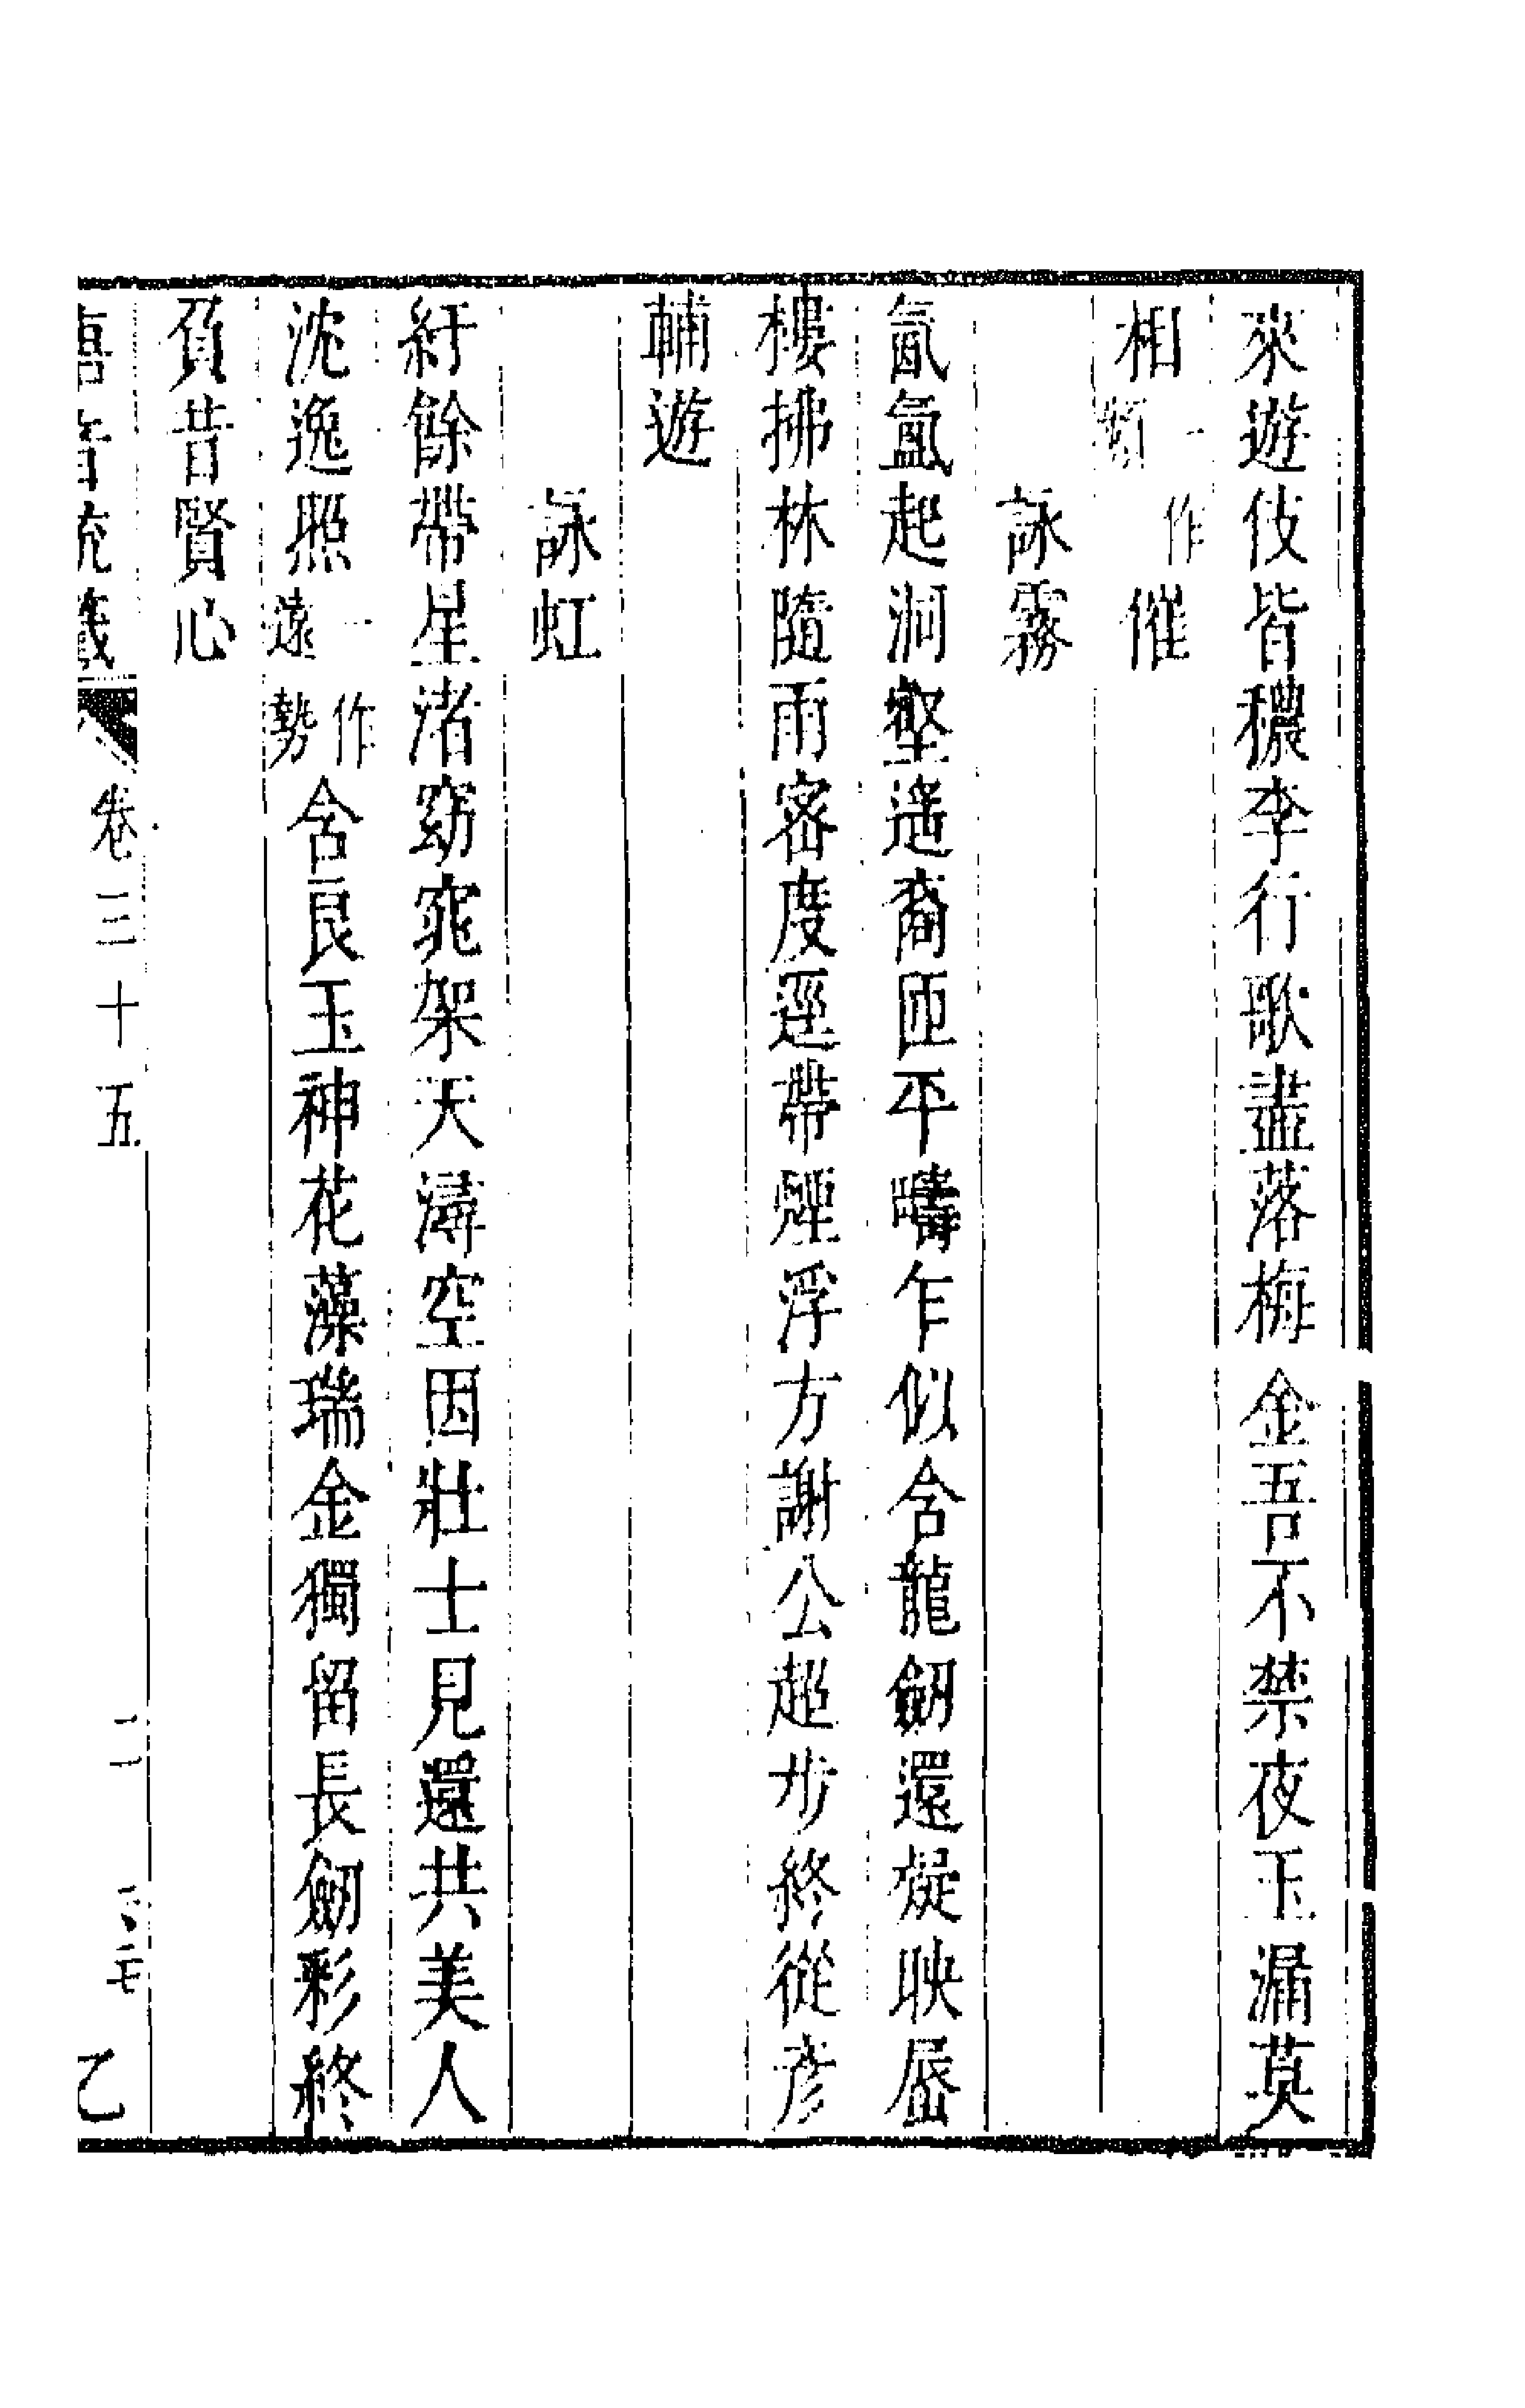 來遊伎皆穠李行歌盡落梅金吾不禁夜玉漏莫
相一作頻催
詠霧
氤氳起洞壑遥裔匝平疇乍似含龍劒還疑映蜃
樓拂林隨雨密度逕帶煙浮方謝公超步終從彦
輔遊
詠虹
紆餘帶星渚窈窕架天潯空因壯士見還共美人
沈逸照一作遠勢含良玉神花藻瑞金獨留長劒彩終
負昔賢心
唐音統籖 卷三十五 二 乙